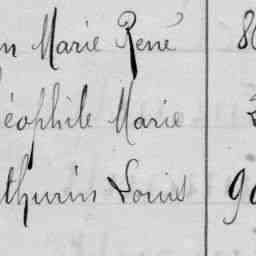 n Marie René 8
éophile Marie
thurin Louis 90